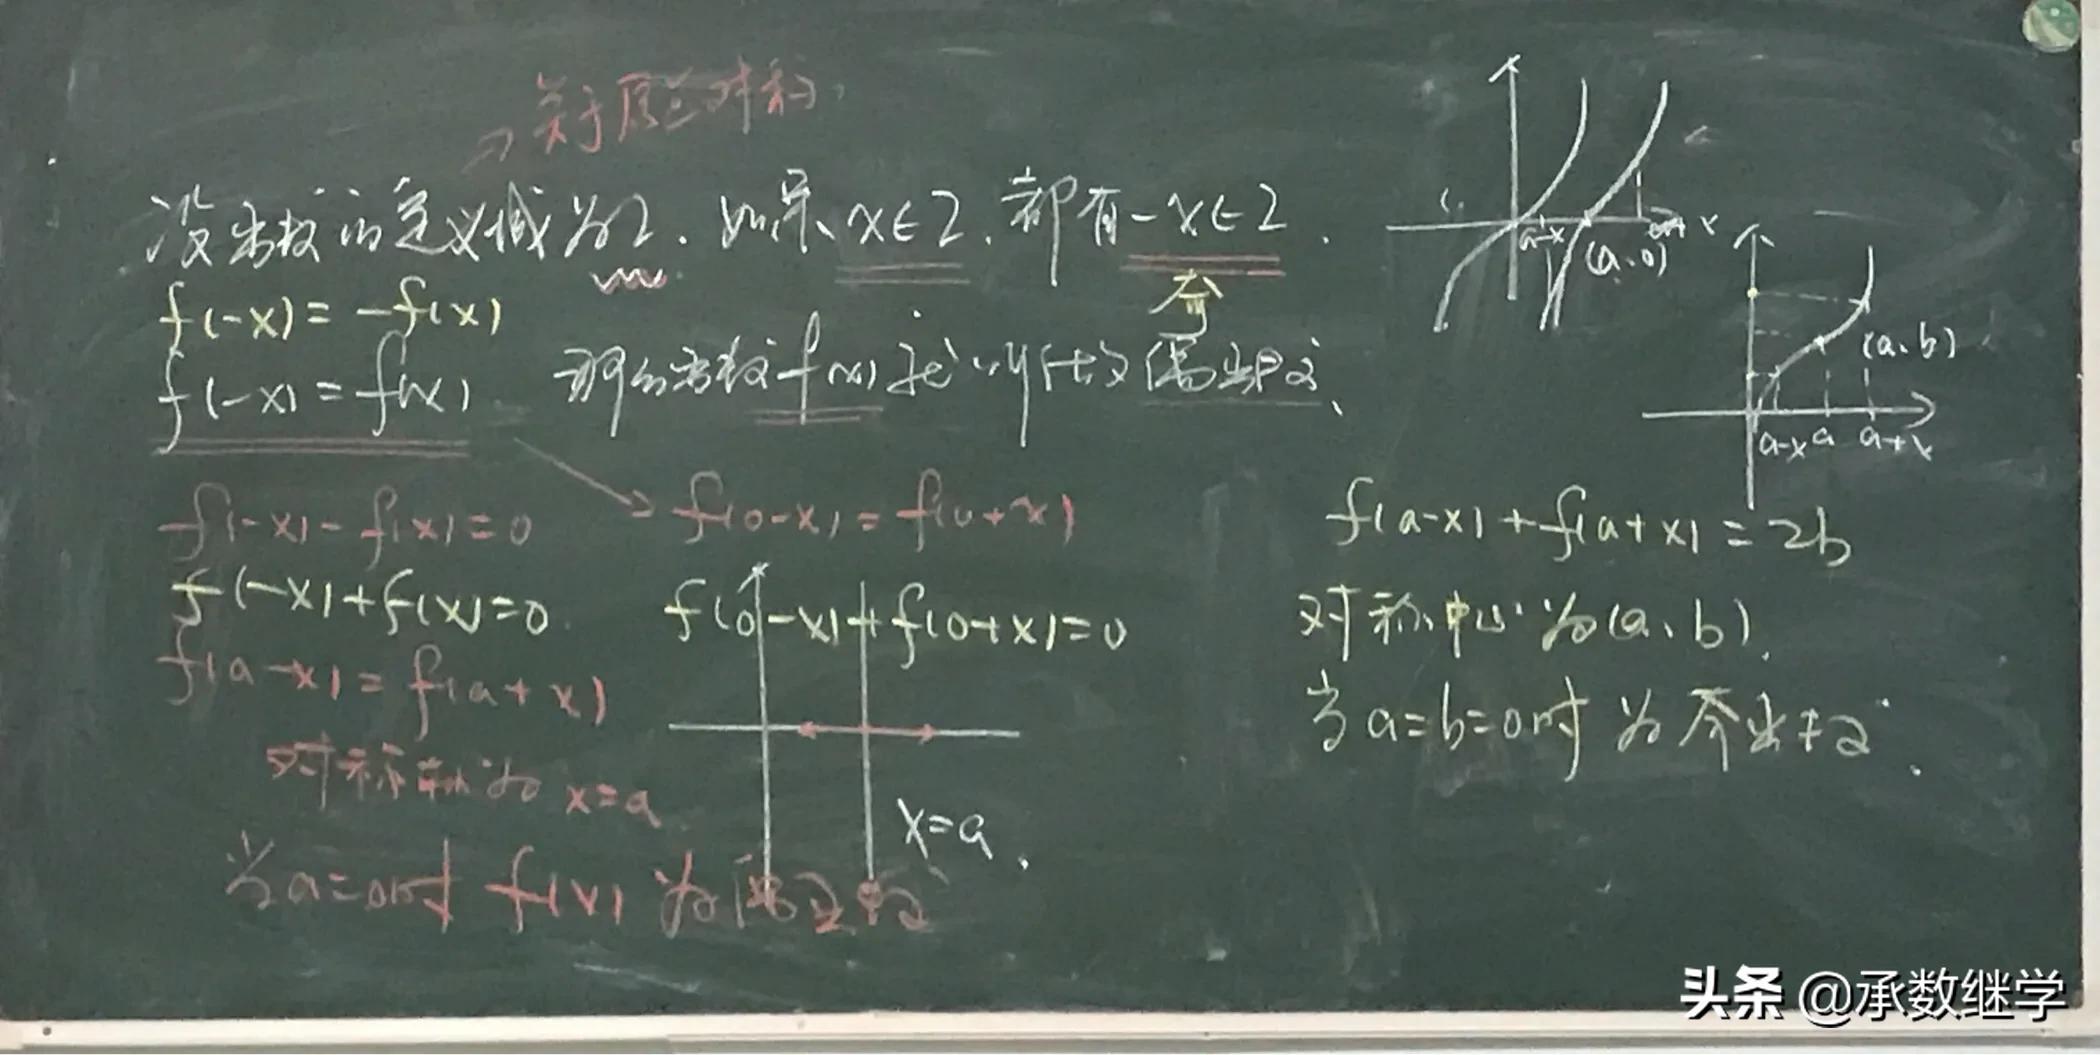 关于原点对称
设函数的定义域为I.如果x∈I.都有-x∈I.
f(-x)=-f(x)
奇
f(-x)=f(x)
那么函数f(x)就叫做偶函数、
f(-x)-f(x)=0
f(0-x)=f(0+x)
f(-x)+f(x)=0
f(0-x)+f(0+x)=0
f(a-x)=f(a+x)
对称轴为 x=a
x=a.
当a=0时 f(x) 为偶函数
a-x
(a、0)
a+x
(a、b)
a-x a a+x
f(a-x)+f(a+x)=2b
对称中心为(a、b).
当a=b=0时 为奇函数.
头条 @承数继学